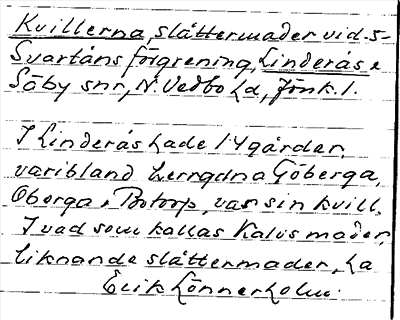 Kvillerna, slåttermader vid S-
Svartåns förgrening, Linderås &
Säby snr, N. Vedbo hd, Jönk. l.
I Linderås hade 14 gårder,
varibland herrgdna Göberga,
Oberga, Botorp, var sin kvill.
I vad som kallas Kalvs mader,
liknande slåttermader, ha
Erik Lönnerholm.